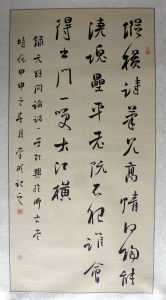 縱橫詩筆見高情何物能
澆塊壘平老阮不狂誰會
得出門一笑大江橫
錄元好問論詩一首
甲申之